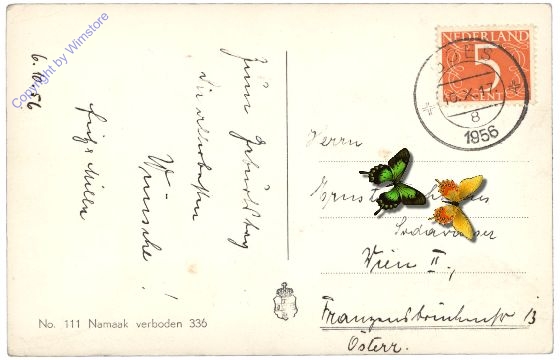 6. 10. 56
Zum Geburtstag
die allerbesten
Wünsche!
Copyright by Wimstore
NEDERLAND
5
CENT
GOES
8
1956
Herrn
Ernst
Wien II.,
Franzensbrückenstr 13
Österr.
No. 111 Namaak verboden 336